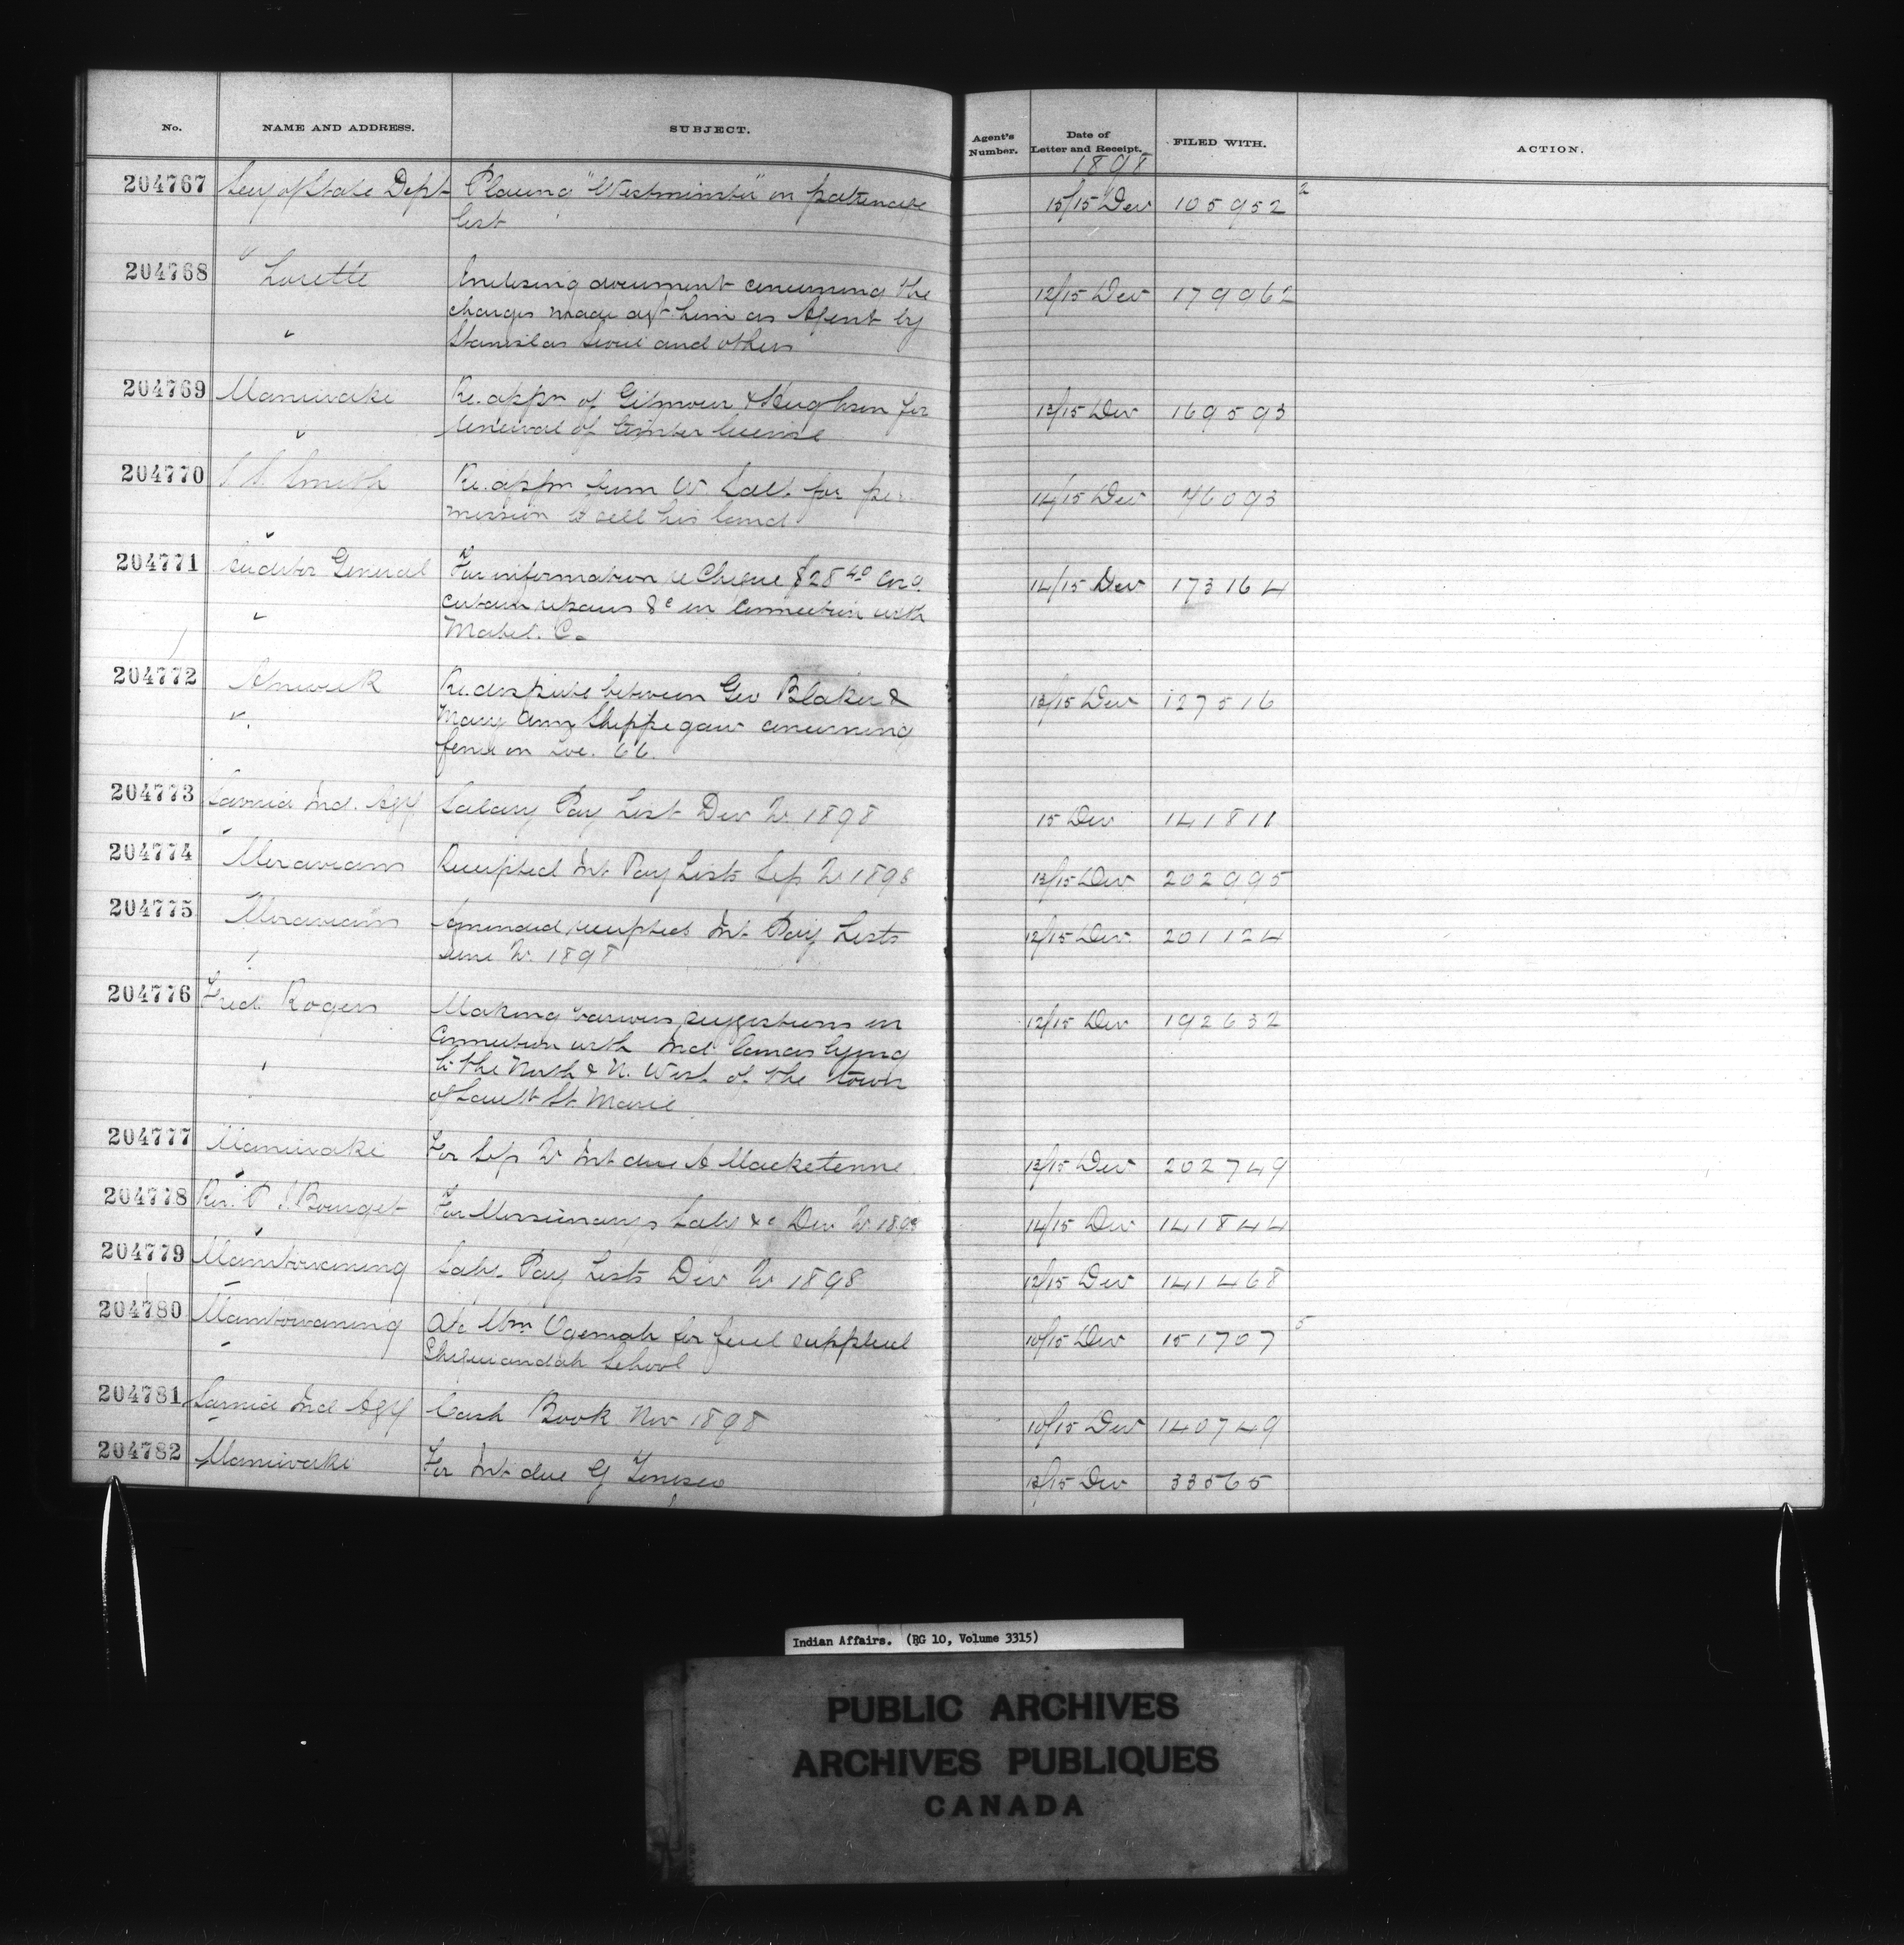 No. NAME AND ADDRESS. SUBJECT. Agent's Number. Date of Letter and Receipt. FILED WITH. ACTION.
1898
204767 Secy of State Dept Placing "Westminster" on patronage 15/15 Dec 105952 2
list
204768 Lorette Enclosing document concerning the 12/15 Dec 179962
charges made agt him as Agent by
Stanislas Sioui and others
204769 Maniwaki Re. appn of Gilmour & Hughson for 13/15 Dec 169593
renewal of timber license
204770 Smith Re. appn Wm W. Salt for per 14/15 Dec 46093
mission to sell his land
204771 Auditor General For information re Cheque $28 40 and 14/15 Dec 173164
certain repairs &c in connection with
Mabel. C.
204772 Alnwick Re. dispute between Geo Blaker & 13/15 Dec 127516
Mary Ann Sheppegaw concerning
fence on Loc. 66.
204773 Sarnia Ind. Agy Salary Pay List Dec Qr 1898 15 Dec 141811
204774 Moravians Receipted Int. Pay Lists Sep Qr 1898 13/15 Dec 202995
204775 Moravians Amended receipted Int. Pay Lists 12/15 Dec 201124
June Qr. 1898
204776 Fred Rogers Making various suggestions in 12/15 Dec 192632
connection with Ind lands lying
to the North & N. West of the town
of Sault St. Marie
204777 Maniwaki For Sep Qr Int due A Macketenne 13/15 Dec 202749
204778 Rev. P. J. Bourget For Missionarys Saly &c Dec Qr 1898 14/15 Dec 141844
204779 Manitowaning Saly. Pay Lists Dec Qr 1898 12/15 Dec 141468
204780 Manitowaning a/c Wm Ogemah for fuel supplied 10/15 Dec 151707 5
Sheguiandah School
204781 Sarnia Ind Agy Cash Book Nov 1898 10/15 Dec 140749
204782 Maniwaki For Int due G Tenesco 13/15 Dec 33565
Indian Affairs. (RG 10, Volume 3315)
PUBLIC ARCHIVES
ARCHIVES PUBLIQUES
CANADA